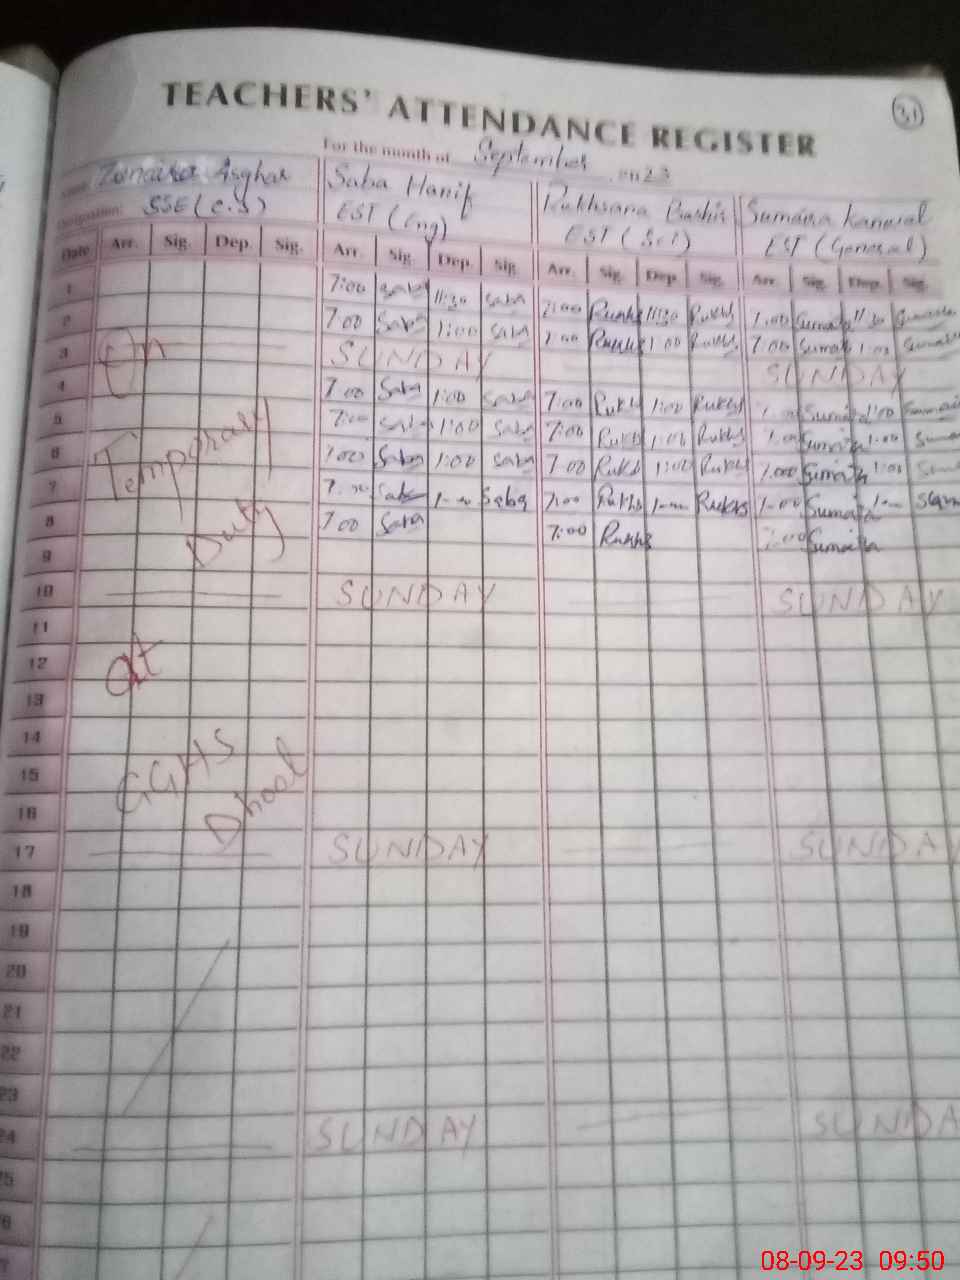 31
TEACHERS' ATTENDANCE REGISTER
For the month of September 2023
Asghar Saba Hanif Rukhsana Bashir Sumaira Kanwal
Designation: SSE (C.S) EST (Eng) EST (Sci) EST (General)
Date Arr. Sig. Dep. Sig. Arr. Sig. Dep. Sig. Arr. Sig. Dep. Sig. Arr. Sig. Dep. Sig.
1 7:00 Saba 11:30 Saba 7:00 Rukhs 11:30 Rukhs 7:00 Sumaira 11:30 Sumaira
2 7:00 Saba 1:00 Saba 7:00 Rukhs 1:00 Rukhs 7:00 Sumaira 1:00 Sumaira
3 On SUNDAY SUNDAY
4 7:00 Saba 1:00 Saba 7:00 Rukhs 1:00 Rukhs 7:00 Sumaira 1:00 Sumaira
5 7:00 Saba 1:00 Saba 7:00 Rukhs 1:00 Rukhs 7:00 Sumaira 1:00
6 Temporary 7:00 Saba 1:00 Saba 7:00 Rukhs 1:00 Rukhs 7:00 Sumaira 1:00
7 7:00 Saba 1:00 Saba 7:00 Rukhs 1:00 Rukhs 7:00 Sumaira 1:00
8 Duty 7:00 Saba 7:00 Rukhs 7:00 Sumaira
9
10 SUNDAY SUNDAY
11
12 at
13
14
15 GGHS
16 Dhool
17 SUNDAY SUNDAY
18
19
20
21
22
23
24 SUNDAY SUNDA
25
26
08-09-23 09:50